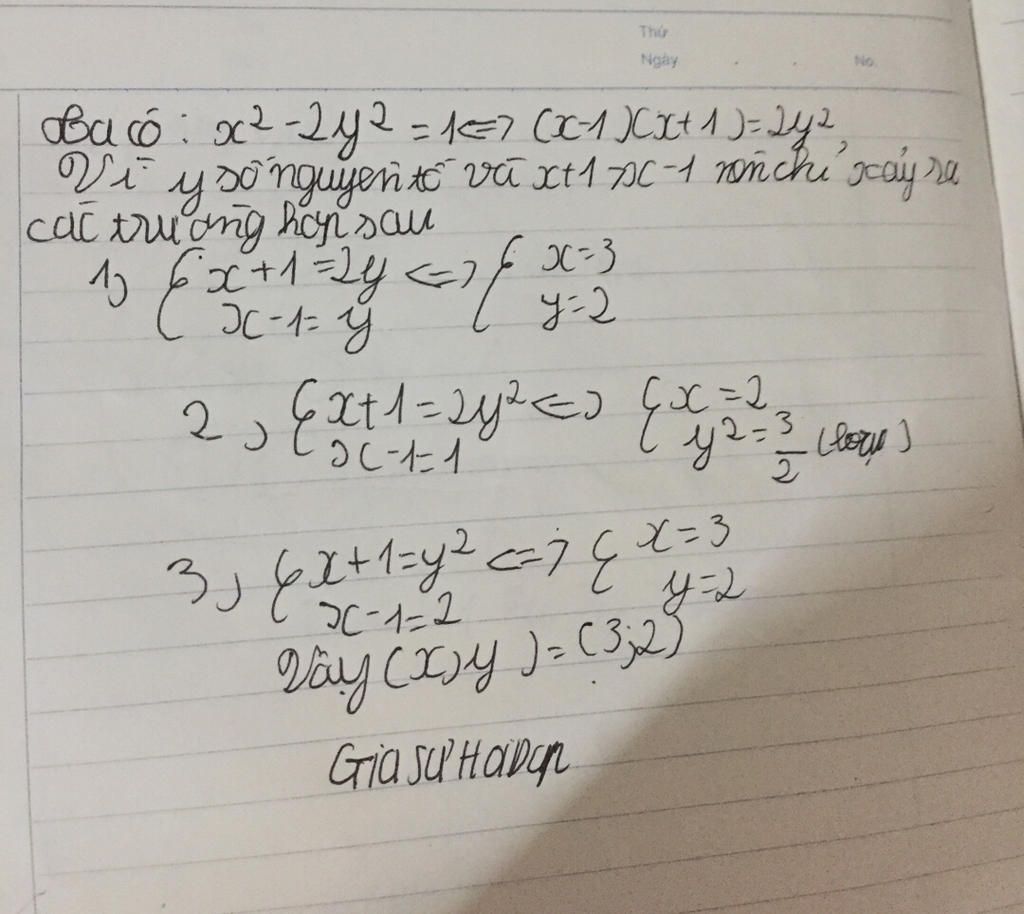 Thứ
Ngày . . No.
Ta có : x² - 2y² = 1 <=> (x-1)(x+1) = 2y²
Vì y số nguyên tố và x+1 > x-1 nên chỉ xảy ra
các trường hợp sau
1) { x+1 = 2y <=> { x = 3
x-1 = y y = 2
2) { x+1 = 2y² <=> { x = 2
x-1 = 1 y² = 3/2 (loại)
3) { x+1 = y² <=> { x = 3
x-1 = 2 y = 2
Vậy (x;y) = (3;2)
Gia sư Hỏi Đáp